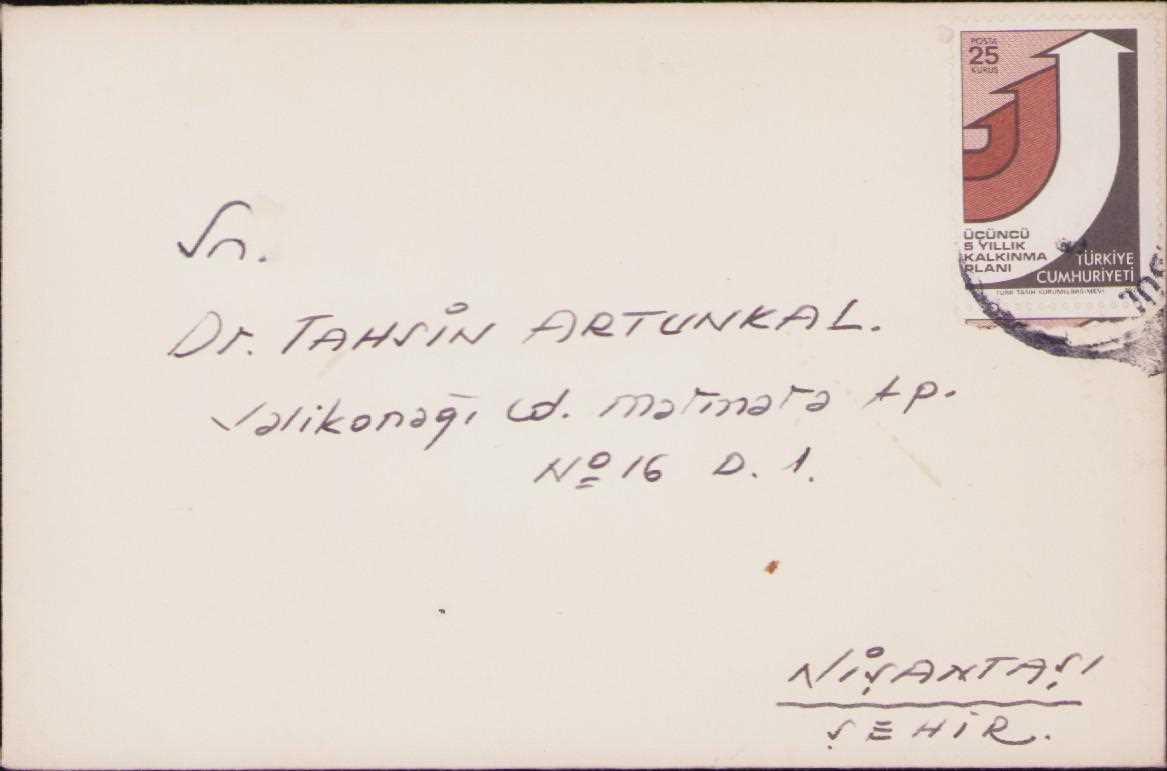 POSTA
25
KURUŞ
ÜÇÜNCÜ
5 YILLIK
KALKINMA
PLANI
TÜRKİYE
CUMHURİYETİ
TÜRK TARİH KURUMU BASIMEVİ
Sn.
Dr. TAHSİN ARTUNKAL.
Valikonağı Cd. Marmara Ap.
Nº 16 D. 1.
NİŞANTAŞI
ŞEHİR.